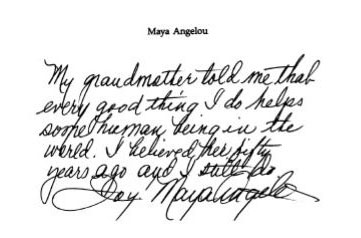 Maya Angelou
My grandmother told me that
every good thing I do helps
some human being in the
world. I believed her fifty
years ago and I still do
Joy! Maya Angelou